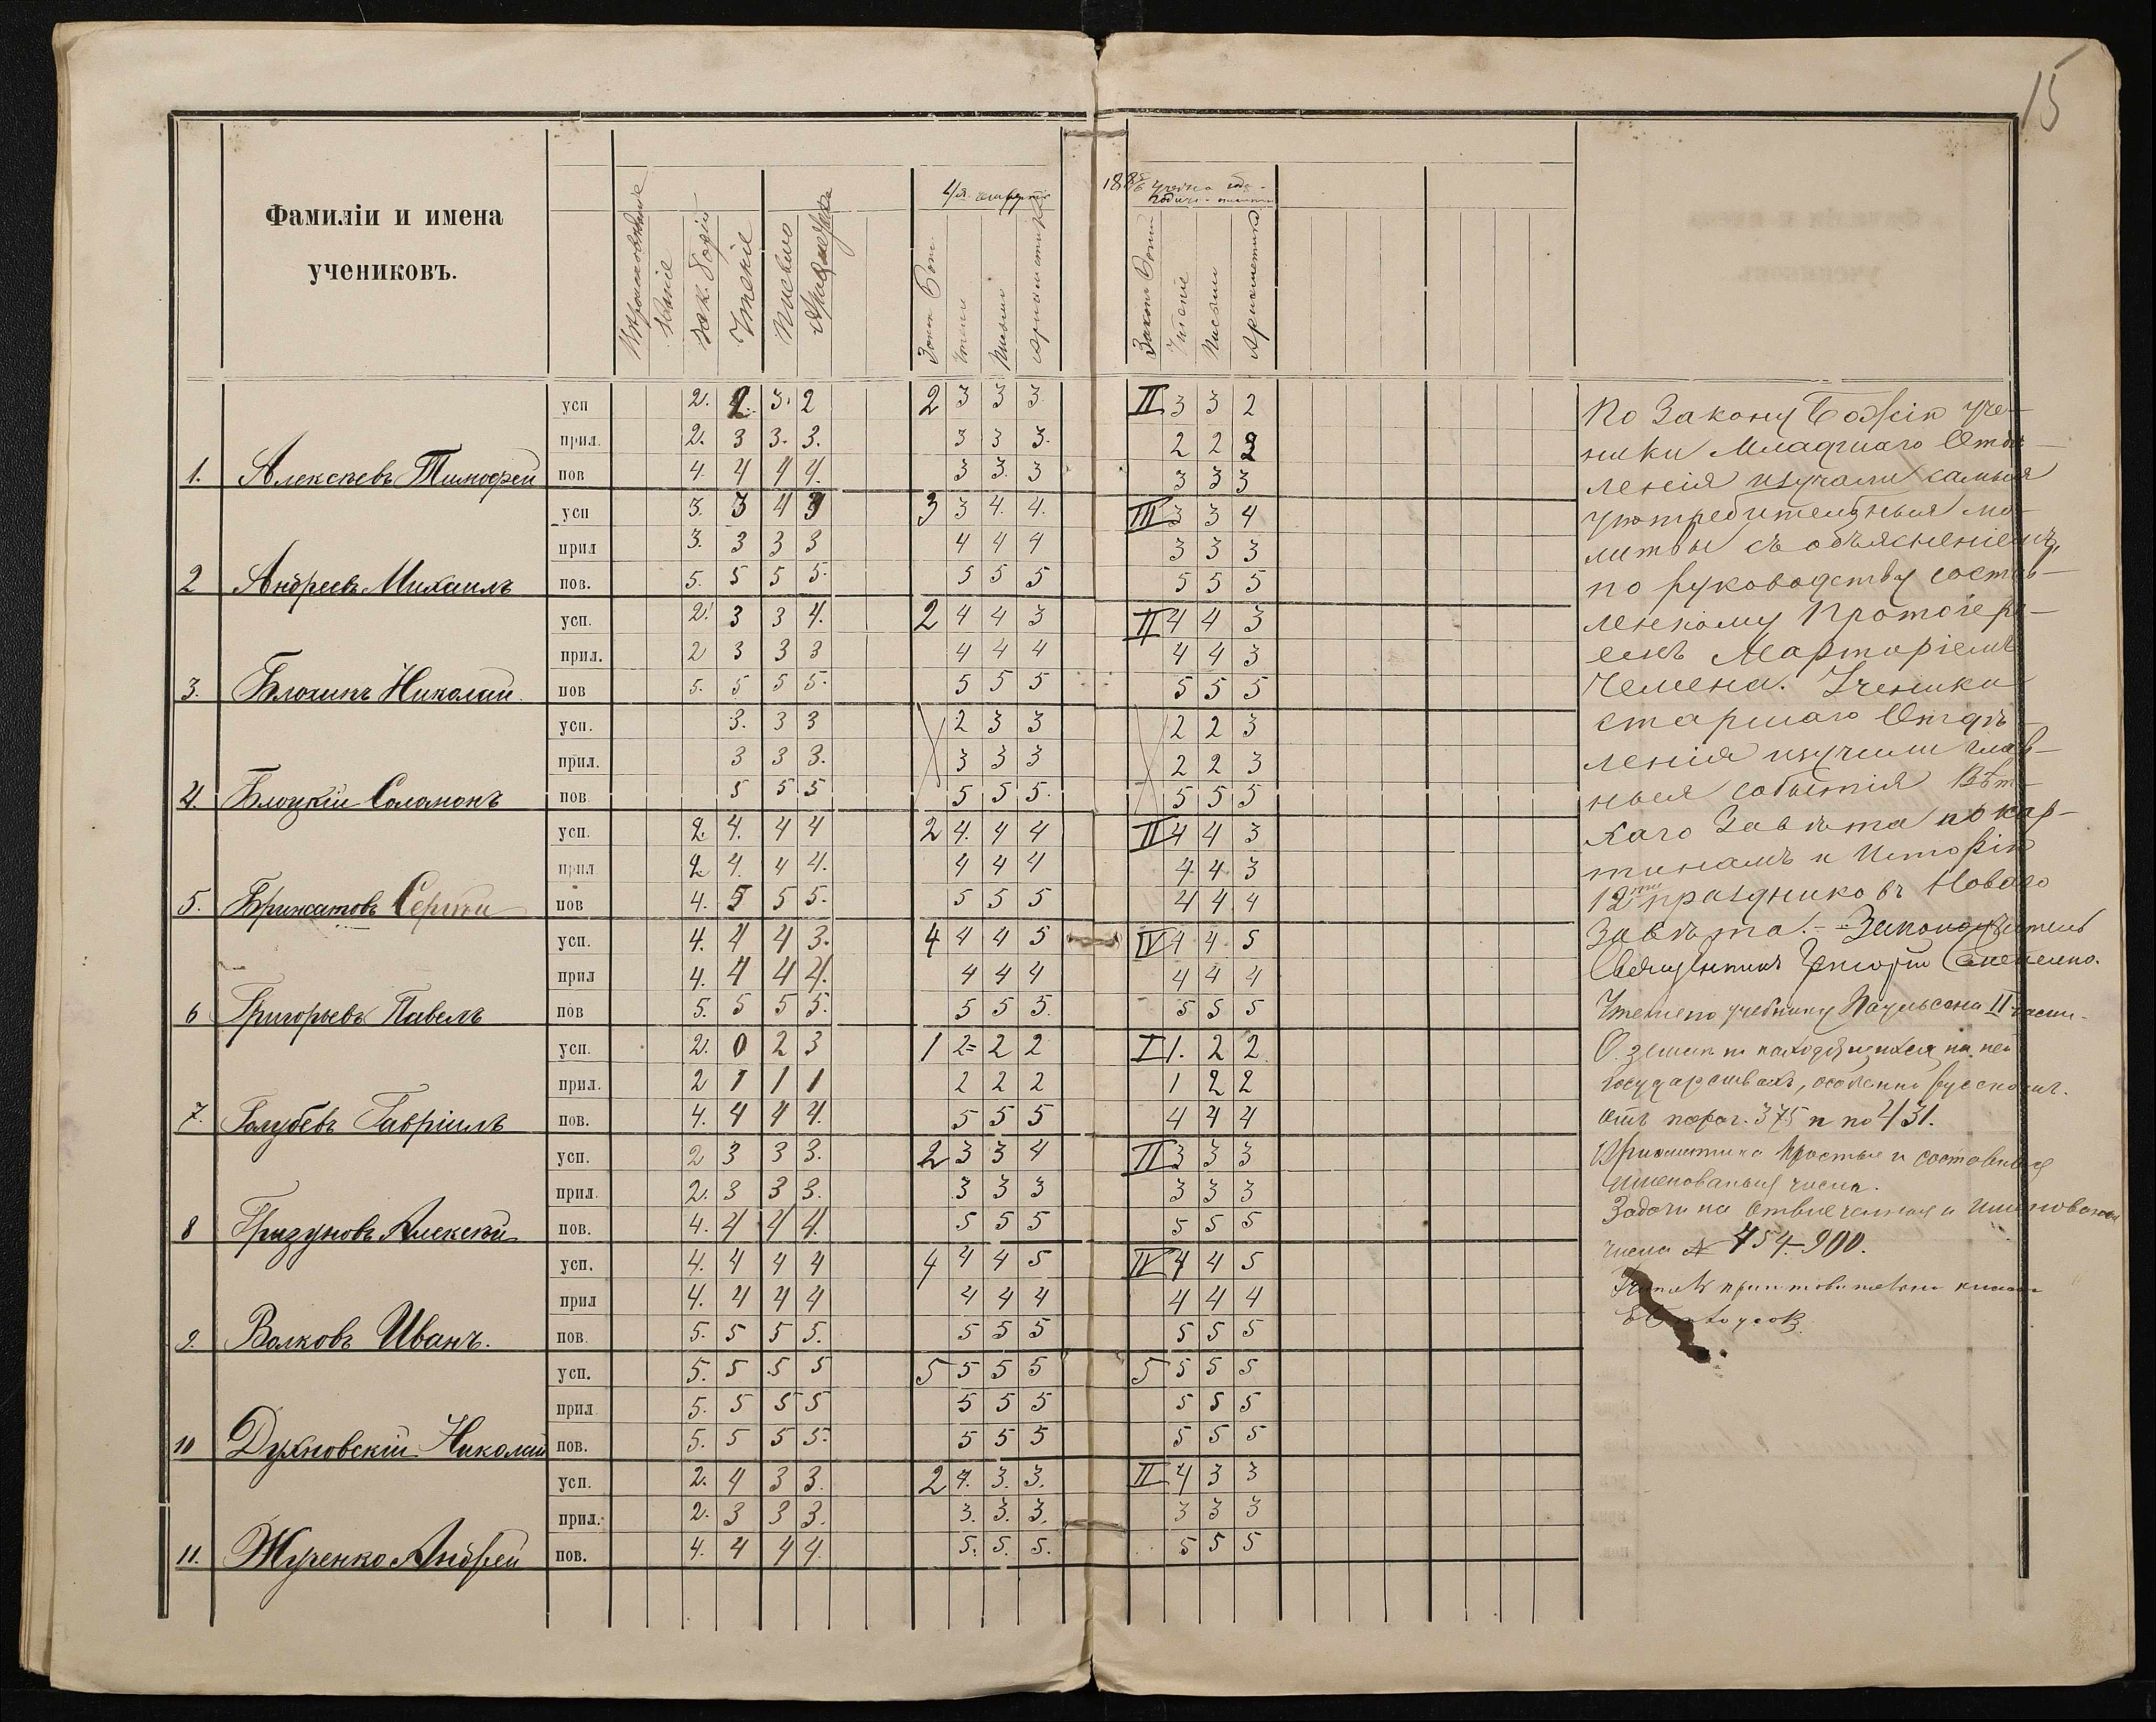 15
Фамиліи и имена
учениковъ.
зак. Божій
Чтеніе
Письмо
4/я.
1885/6
Законъ Божій
Чтеніе
Письмо
Ариѳметика
усп 2. 2. 3. 2 2 3 3 3 II 3 3 2
прил. 2. 3 3. 3. 3 3 3. 2 2 2
1. Алексѣевъ Тимофей пов 4. 4 4 4. 3 3. 3 3 3 3
усп 3. 3 4 3 3 3 4. 4. III 3 3 4
прил 3. 3 3 3 4 4 4 3 3 3
2 Андреевъ Михаилъ пов. 5. 5 5 5. 5 5 5 5 5 5
усп. 2. 3 3 4. 2 4 4 3 II 4 4 3
прил. 2 3 3 3 4 4 4 4 4 3
3. Блохинъ Николай. пов 5. 5 5 5. 5 5 5 5 5 5
усп. 3. 3 3 2 3 3 2 2 3
прил. 3 3 3. 3 3 3 2 2 3
4. Блоцкій Соломонъ пов 5 5 5 5 5 5. 5 5 5
усп. 2. 4. 4 4 2 4. 4 4 II 4 4 3
прил 2 4. 4 4. 4 4 4 4. 4. 3
5. Сергѣй пов 4. 5 5 5. 5 5 5 4 4 4
усп. 4. 4 4 3. 4 4 4 5 IV 4 4. 5
прил 4. 4 4 4. 4 4 4 4 4 4
6 Григорьевъ Павелъ пов 5. 5 5 5. 5 5 5. 5 5 5
усп. 2. 0 2 3 1 2= 2 2 I 1. 2 2
прил. 2 1 1 1 2 2 2 1 2 2
7. Голубевъ Гавріилъ пов. 4. 4 4 4. 5 5 5 4 4 4
усп. 2 3 3 3. 2 3 3 4 II 3 3 3
прил. 2. 3 3 3. 3 3 3 3 3 3
8 Гризуновъ Алексѣй пов. 4. 4 4 4. 5 5 5 5 5 5
усп. 4. 4 4 4 4 4 4 5 IV 4 4 5
прил 4. 4 4 4 4 4 4 4 4 4
9. Волковъ Иванъ. пов. 5. 5 5 5. 5 5 5 5 5 5
усп. 5. 5 5 5 5 5 5 5 5 5 5 5
прил 5. 5 5 5 5 5 5 5 5 5
10 Духновскій Николай пов. 5. 5 5 5. 5 5 5 5 5 5
усп. 2. 4 3 3. 2 4. 3. 3. II 4 3 3
прил. 2. 3 3 3. 3. 3. 3. 3 3 3
11. Жученко Андрей пов. 4. 4 4 4. 5. 5. 5. 5 5 5
По Закону Божію уче-
ники Младшаго Отдѣ-
ленія изучали самыя
употребительныя мо-
литвы съ объясненіемъ,
по руководству состав-
ленному Протоіере-
емъ
Чемена. Ученики
старшаго Отдѣ-
ленія изучили глав-
ныя событія Вѣт-
хаго Завѣта по кар-
тинамъ и Исторію
12ти праздниковъ Новаго
Завѣта. - Законоучитель
Священникъ Григорій
Чтеніе по учебнику Паульсона II части.
О земли и находящихся на ней
государствахъ, особенно русскомъ.
отъ парагр. 375 и по 431.
Ариѳметика Простыя и составныя
именованныя числа.
Задачи на отвлеченныя и именованныя
числа № 754-900.